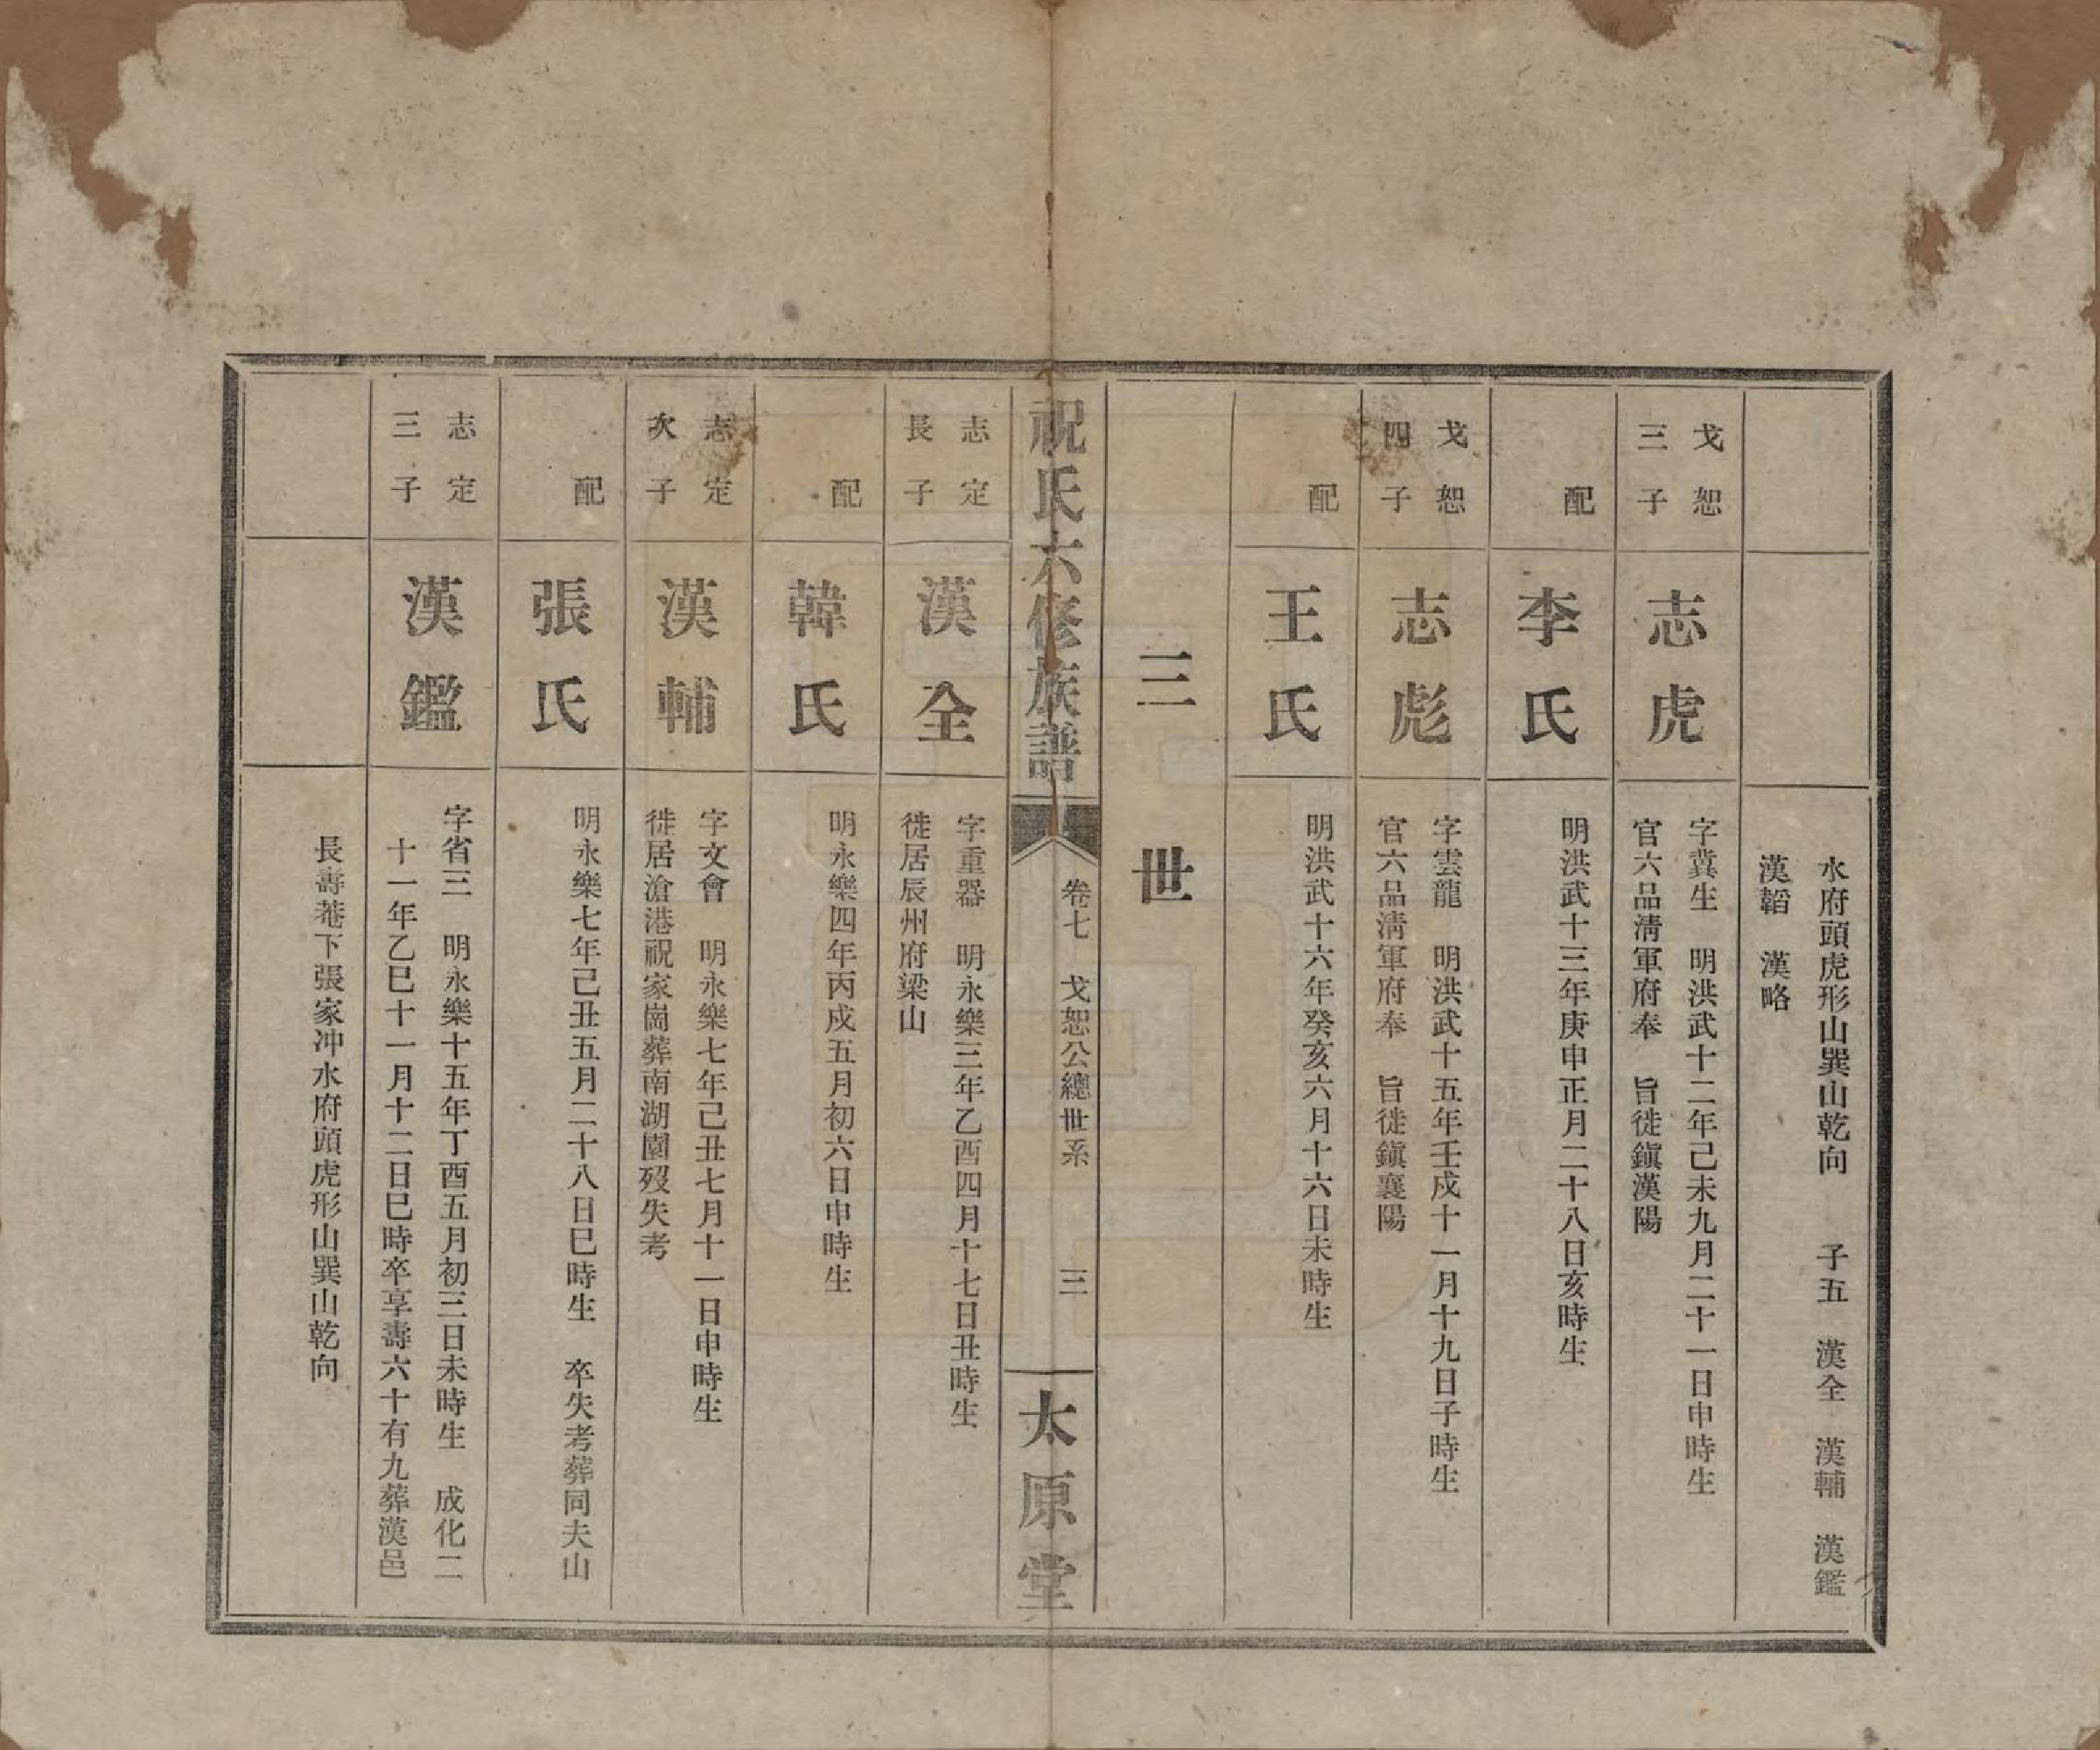 水府頭虎形山巽山乾向　子五　漢全　漢輔　漢鑑
漢韜　漢略
戈恕
三子
志虎
字冀生　明洪武十二年己未九月二十一日申時生
官六品淸軍府奉　旨徙鎭漢陽
配
李氏
明洪武十三年庚申正月二十八日亥時生
戈恕
四子
志彪
字雲龍　明洪武十五年壬戌十一月十九日子時生
官六品淸軍府奉　旨徙鎭襄陽
配
王氏
明洪武十六年癸亥六月十六日未時生
三世
祝氏六修族譜
卷七　戈恕公總世系
三
太原堂
志定
長子
漢全
字重器　明永樂三年乙酉四月十七日丑時生
徙居辰州府梁山
配
韓氏
明永樂四年丙戌五月初六日申時生
志定
次子
漢輔
字文會　明永樂七年己丑七月十一日申時生
徙居滄港祝家崗葬南湖園歿失考
配
張氏
明永樂七年己丑五月二十八日巳時生　卒失考葬同夫山
志定
三子
漢鑑
字省三　明永樂十五年丁酉五月初三日未時生　成化二
十一年乙巳十一月十二日巳時卒享壽六十有九葬漢邑
長壽菴下張家冲水府頭虎形山巽山乾向